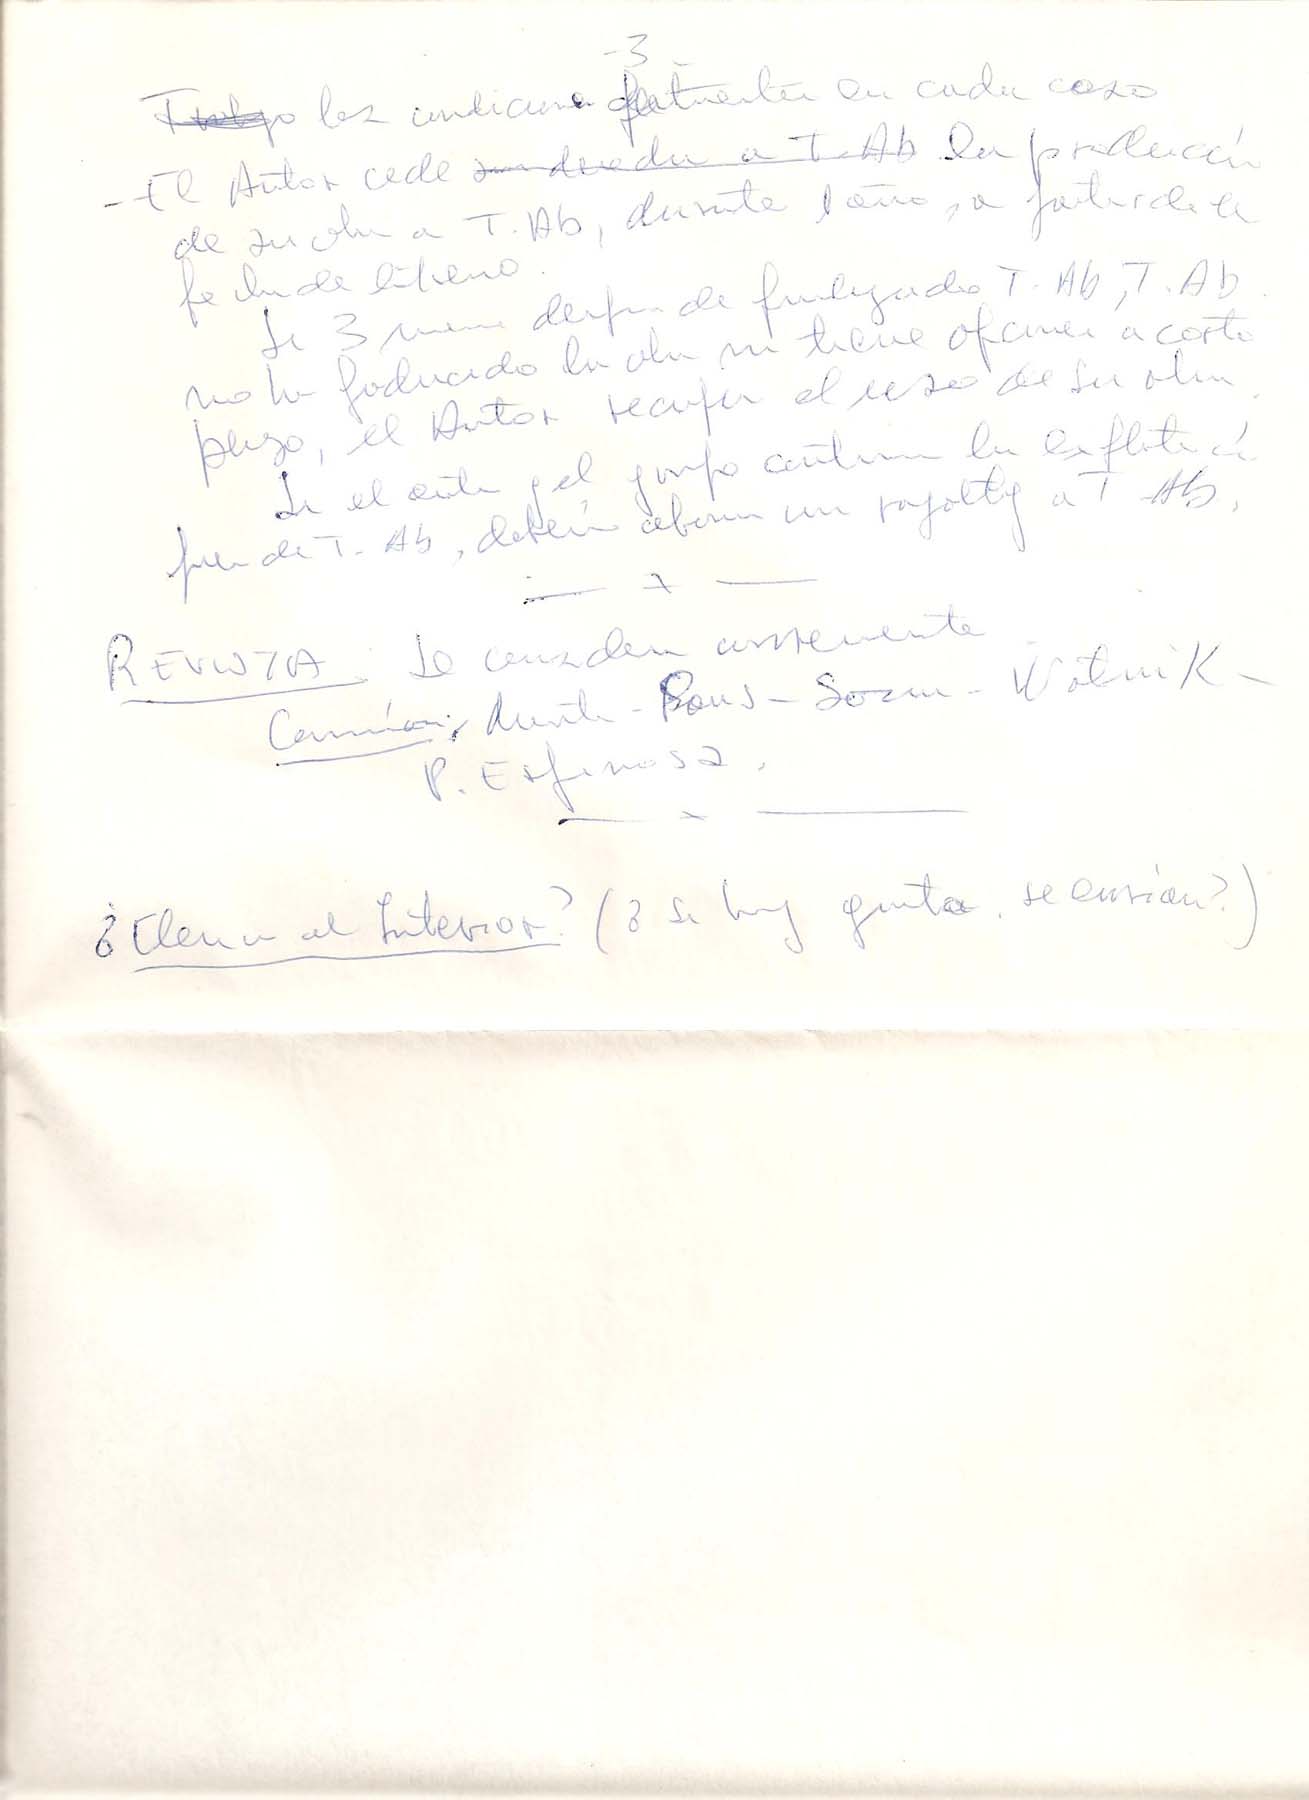 -3-
las condiciones en cada caso
- El Autor cede su derecho a T. Ab la producción
de su obra a T. Ab, durante 1 año, a partir de la
fecha de estreno.
Si 3 meses después de finalizado T. Ab, T. Ab
no ha producido la obra ni tiene a corto
plazo, el Autor recupera el uso de su obra.
Si el autor y el grupo continúan la explotación
fuera de T. Ab, deberán abonar un royalty a T. Ab.
— x —
REVISTA. Se considera conveniente
Comisión: - Pous - Sozzi - Wolnik -
P. Espinosa.
— x —
¿ al Interior? (¿Si hay se envían?)